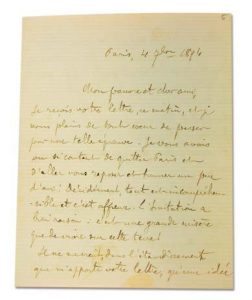 6
Paris, 4 9bre 1894
Mon pauvre et cher ami,
Je reçois votre lettre, ce matin, et je
vous plains de tout cœur de passer
par une telle épreuve. Je vous avais
vu si content de quitter Paris et
d'aller vous reposer et humer un peu
d'air! Décidément, tout est incompréhen-
sible et c'est affreux. L'Imitation a
bien raison: c'est une grande misère
que de vivre sur cette terre!
Je ne
que m'apporte votre lettre, qu'une idée